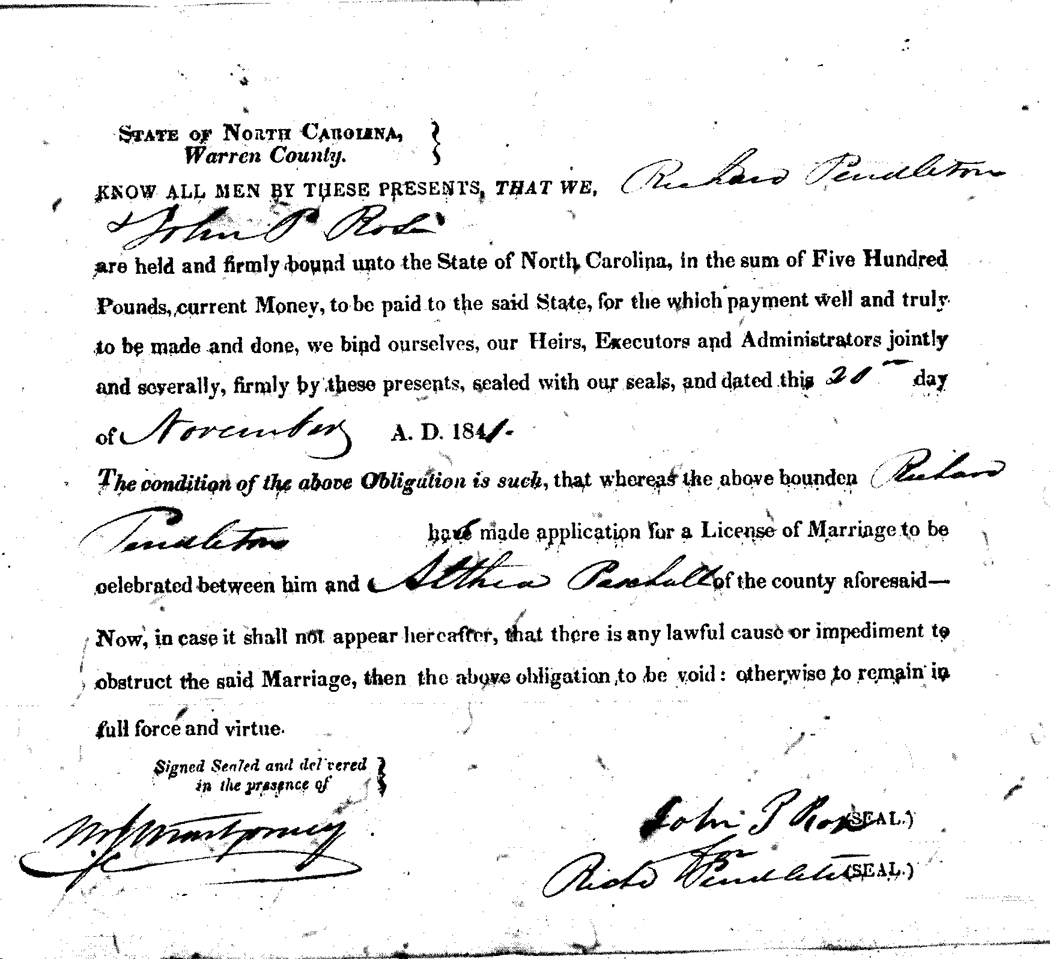 STATE OF NORTH CAROLINA,
Warren County.
KNOW ALL MEN BY THESE PRESENTS, THAT WE, Richard Pendleton
& John P Rose
are held and firmly bound unto the State of North Carolina, in the sum of Five Hundred
Pounds, current Money, to be paid to the said State, for the which payment well and truly
to be made and done, we bind ourselves, our Heirs, Executors and Administrators jointly
and severally, firmly by these presents, sealed with our seals, and dated this day
of November A. D. 1841.
The condition of the above Obligation is such, that whereas the above bounden Richard
Pendleton has made application for a License of Marriage to be
celebrated between him and Althea Paschall of the county aforesaid—
Now, in case it shall not appear hereafter, that there is any lawful cause or impediment to
obstruct the said Marriage, then the above obligation to be void: otherwise to remain in
full force and virtue.
Signed Sealed and delivered
in the presence of
Montgomery
John P Rose (SEAL.)
for
Richd Pendleton (SEAL.)